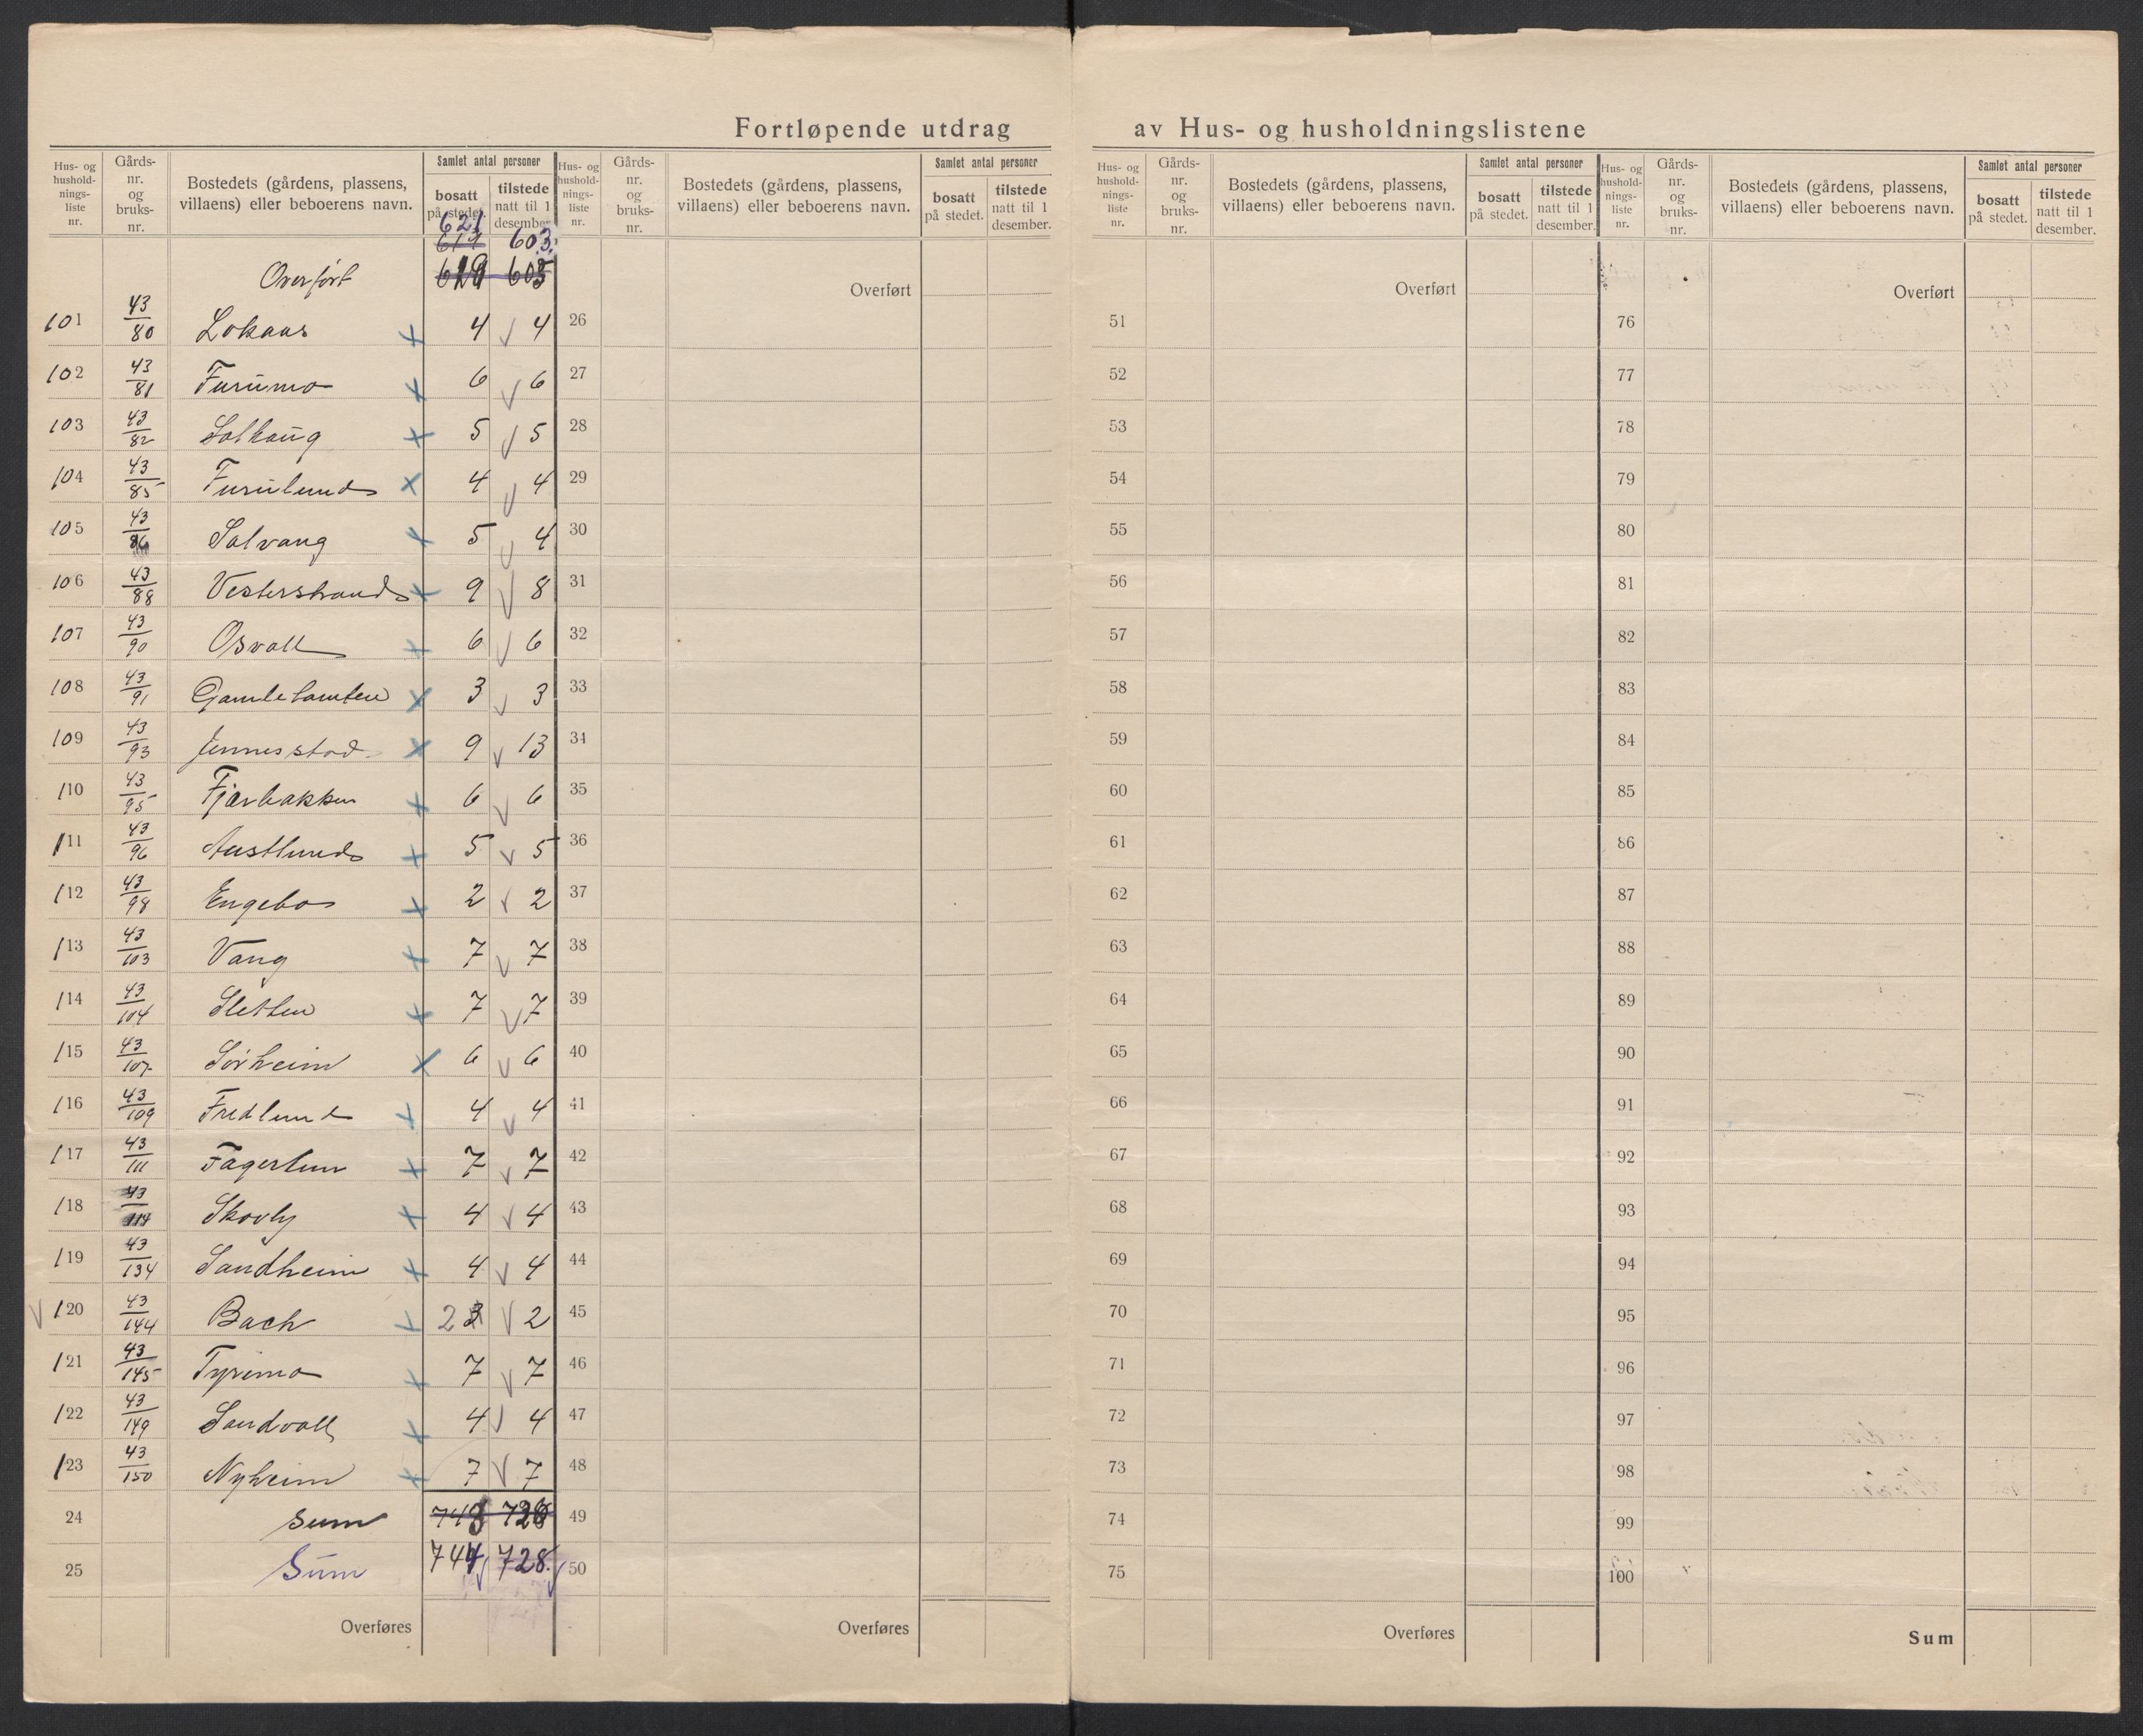 Fortløpende utdrag av Hus- og husholdningslistene
Hus- og hushold-nings-liste nr. | Gårds-nr. og bruks-nr. | Bostedets (gårdens, plassens, villaens) eller beboerens navn. | Samlet antal personer | bosatt på stedet. | tilstede natt til 1 desember.
621 603
Overført
101 43/80 Lokaas 4 4
102 43/81 Furumo 6 6
103 43/82 Solhaug 5 5
104 43/85 Furulund 4 4
105 43/86 Solvang 5 4
106 43/88 Vesterstrand 9 8
107 43/90 Osvoll 6 6
108 43/91 Gamletomten 3 3
109 43/93 Jennesstad 9 13
110 43/95 Fjærbakken 6 6
111 43/96 Austlund 5 5
112 43/98 Engebo 2 2
113 43/103 Vang 7 7
114 43/104 Sletten 7 7
115 43/107 Sørheim 6 6
116 43/109 Fredlund 4 4
117 43/111 Fagerlun 7 7
118 43/114 Skovly 4 4
119 43/134 Sandheim 4 4
120 43/144 Bach 2 2
121 43/145 Tyrimo 7 7
122 43/149 Sandvoll 4 4
123 43/150 Nyheim 7 7
24 Sum
25 Sum 744 728
Overføres
Hus- og hushold-nings-liste nr. | Gårds-nr. og bruks-nr. | Bostedets (gårdens, plassens, villaens) eller beboerens navn. | Samlet antal personer | bosatt på stedet. | tilstede natt til 1 desember.
Overført
26
27
28
29
30
31
32
33
34
35
36
37
38
39
40
41
42
43
44
45
46
47
48
49
50
Overføres
Hus- og hushold-nings-liste nr. | Gårds-nr. og bruks-nr. | Bostedets (gårdens, plassens, villaens) eller beboerens navn. | Samlet antal personer | bosatt på stedet. | tilstede natt til 1 desember.
Overført
51
52
53
54
55
56
57
58
59
60
61
62
63
64
65
66
67
68
69
70
71
72
73
74
75
Overføres
Hus- og hushold-nings-liste nr. | Gårds-nr. og bruks-nr. | Bostedets (gårdens, plassens, villaens) eller beboerens navn. | Samlet antal personer | bosatt på stedet. | tilstede natt til 1 desember.
Overført
76
77
78
79
80
81
82
83
84
85
86
87
88
89
90
91
92
93
94
95
96
97
98
99
100
Sum